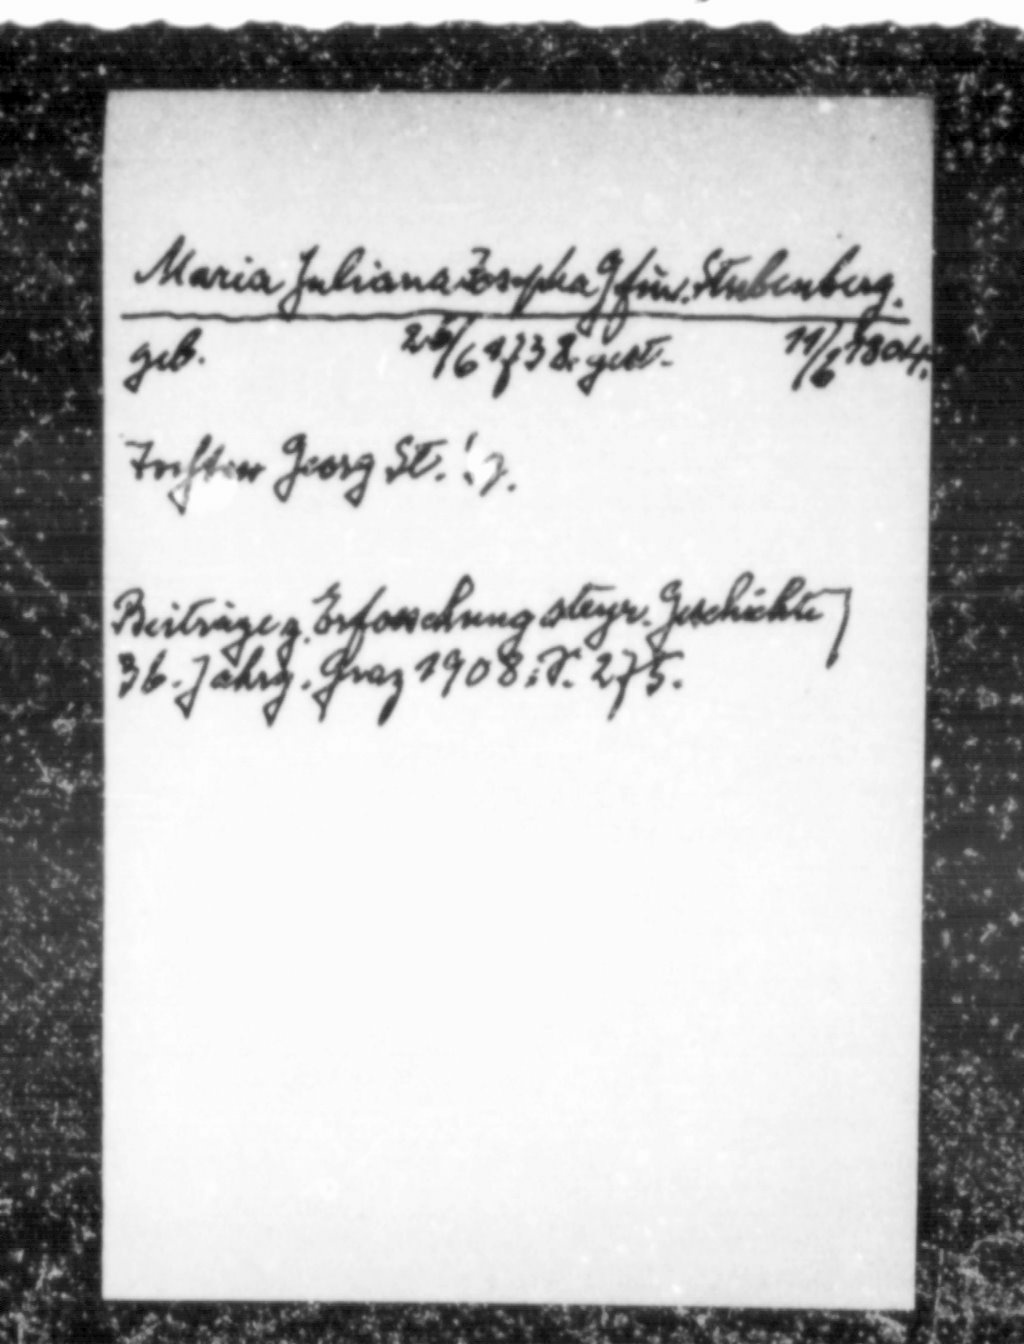 Maria Juliana Josepha Gfin v. Stubenberg.
geb. 26/6 1738. gest. 11/6 1804.
Tochter Georg St.
Beiträge z. Erforschung steyr. Geschichte
36. Jahrg. Graz 1908. S. 275.